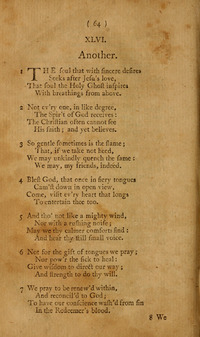 ( 64 )
XLVI.
Another.
1 THE soul that with sincere desires
Seeks after Jesu's love,
That soul the Holy Ghost inspires
With breathings from above.
2 Not ev'ry one, in like degree,
The Spirit of God receives:
The Christian often cannot see
His faith; and yet believes.
3 So gentle sometimes is the flame;
That, if we take not heed,
We may unkindly quench the same:
We may, my friends, indeed.
4 Blest God, that once in fiery tongues
Cam'st down in open view,
Come, visit ev'ry heart that longs
To entertain thee too.
5 And tho' not like a mighty wind,
Nor with a rushing noise;
May we thy calmer comforts find:
And hear thy still small voice.
6 Not for the gift of tongues we pray;
Nor pow'r the sick to heal:
Give wisdom to direct our way;
And strength to do thy will.
7 We pray to be renew'd within,
And reconcil'd to God;
To have our conscience wash'd from sin
In the Redeemer's blood.
8 We